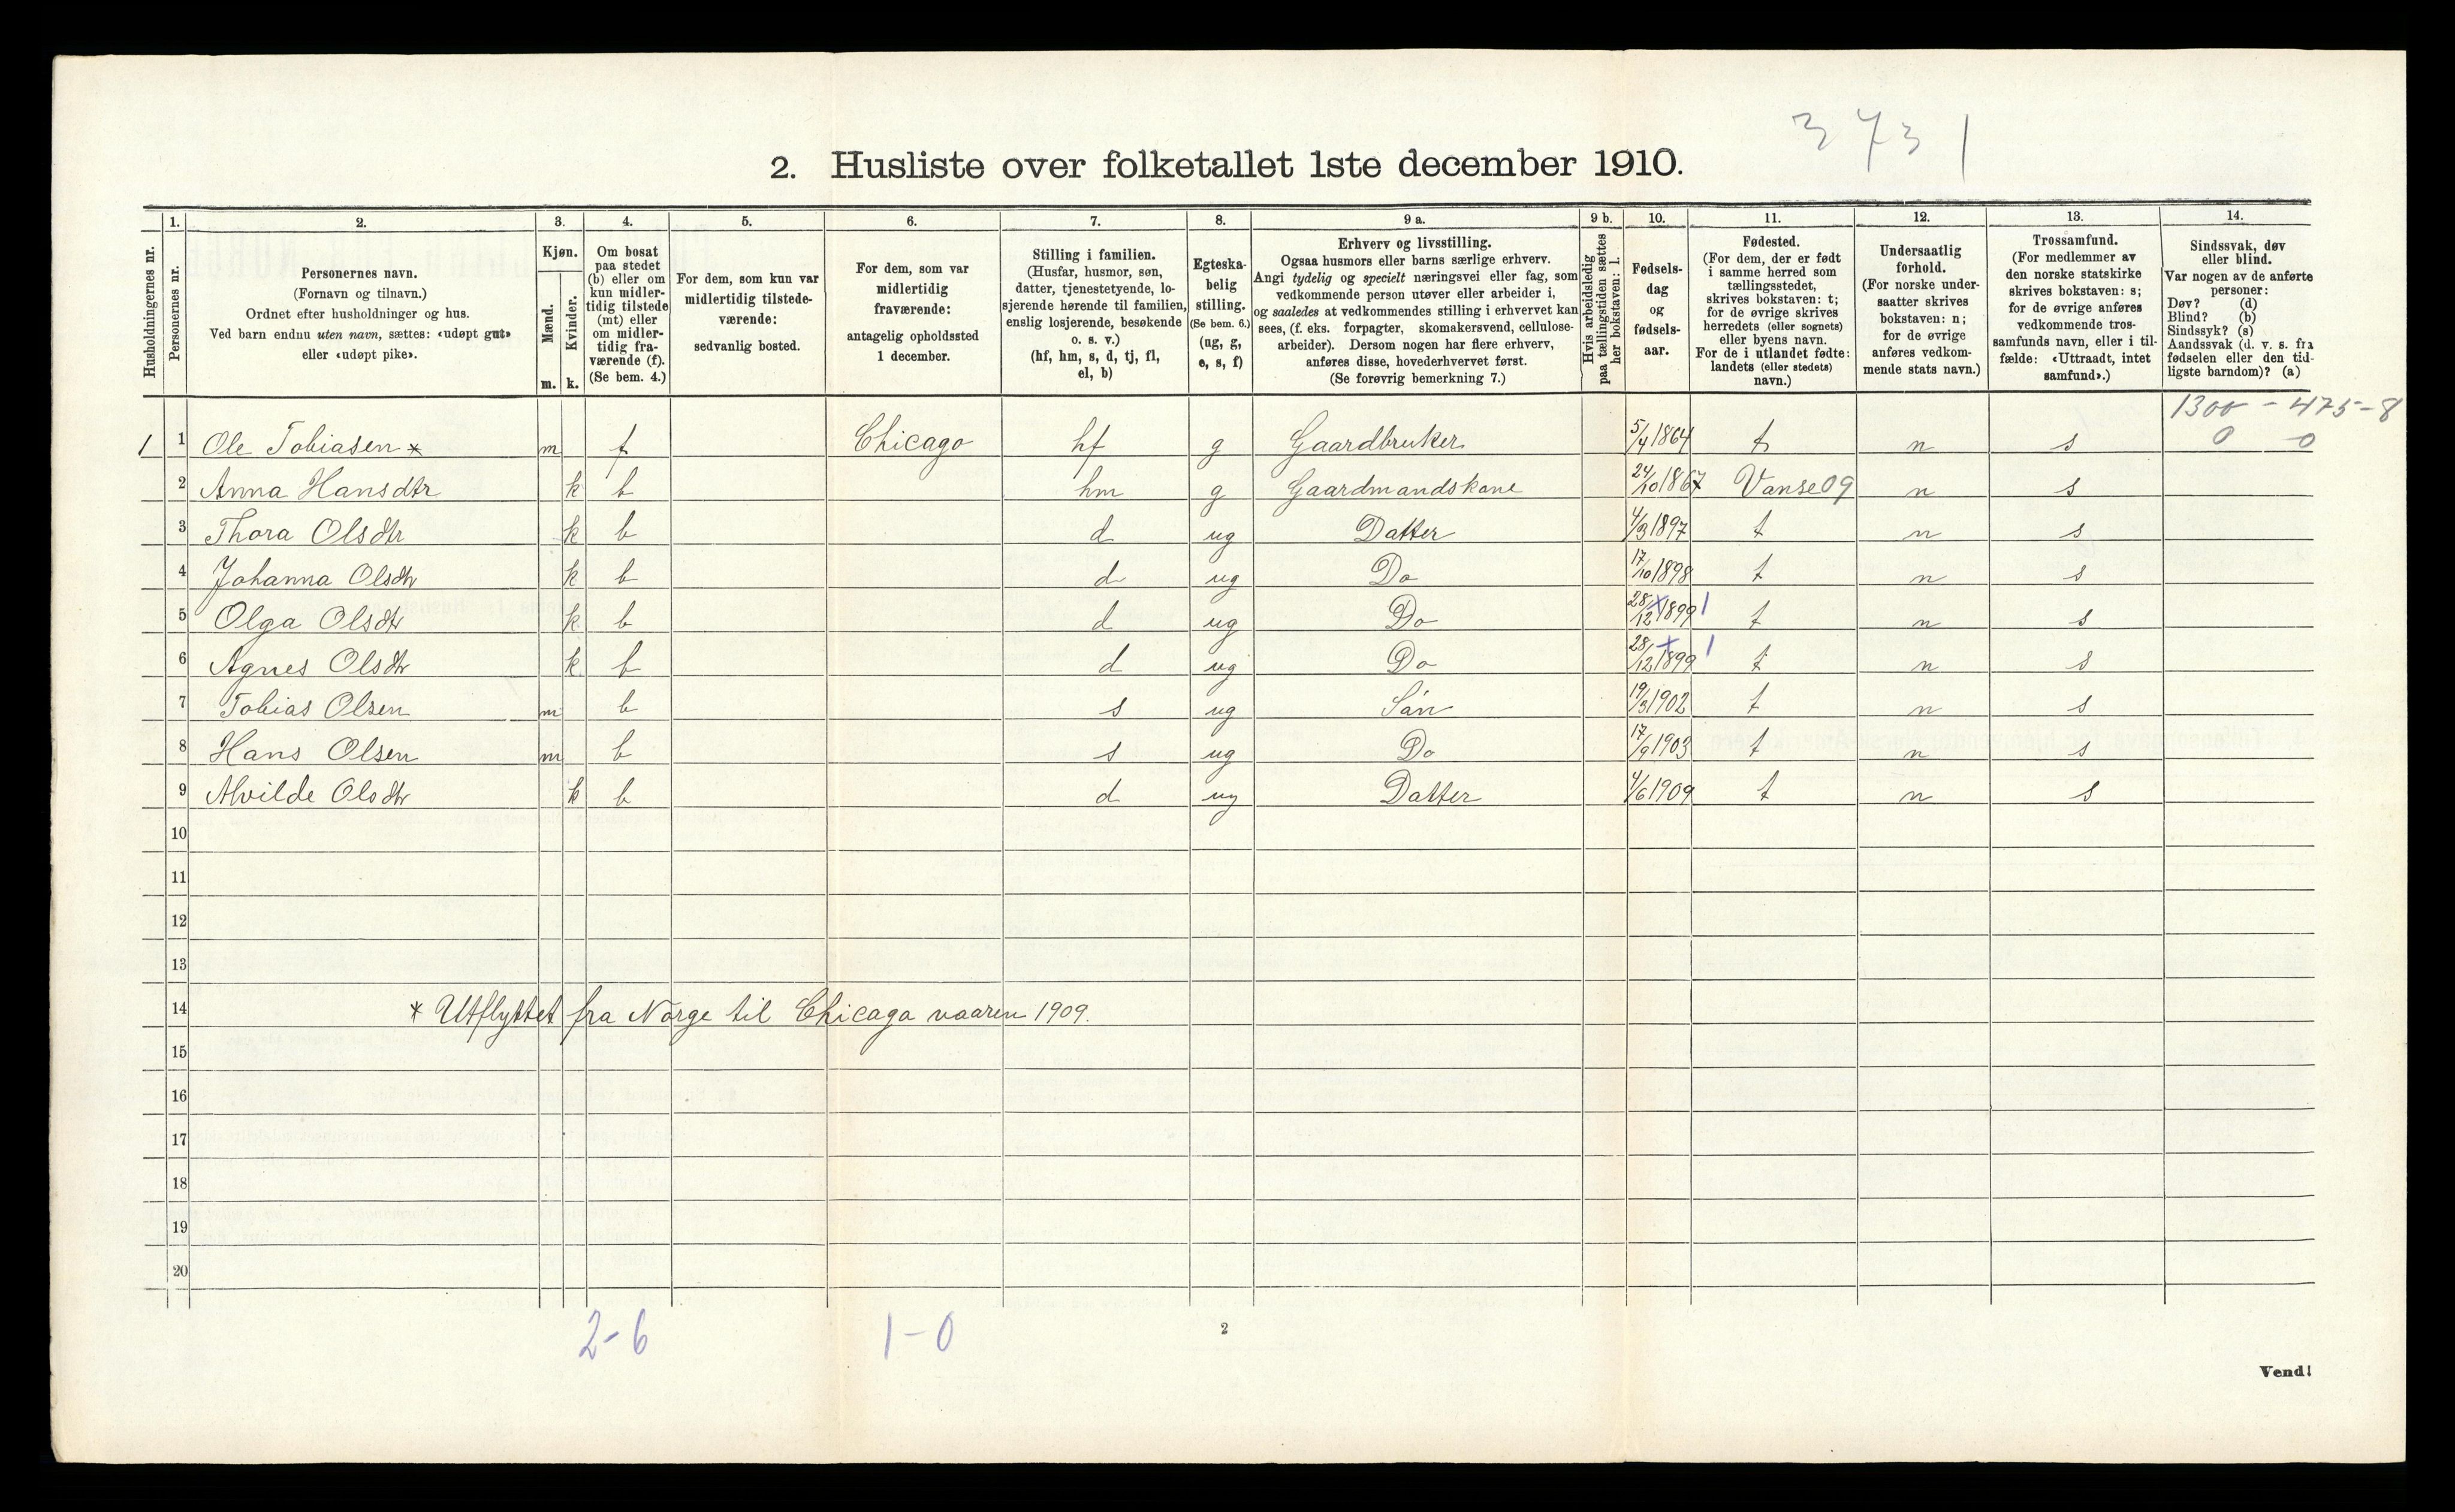 3731
2. Husliste over folketallet 1ste december 1910.
Husholdningernes nr.
1. Personernes nr.
2. Personernes navn. (Fornavn og tilnavn.) Ordnet efter husholdninger og hus. Ved barn endnu uten navn, sættes: «udøpt gut» eller «udøpt pike».
3. Kjøn. Mænd. m. Kvinder. k.
4. Om bosat paa stedet (b) eller om kun midler-tidig tilstede (mt) eller om midler-tidig fra-værende (f). (Se bem. 4.)
5. For dem, som kun var midlertidig tilstede-værende: sedvanlig bosted.
6. For dem, som var midlertidig fraværende: antagelig opholdssted 1 december.
7. Stilling i familien. (Husfar, husmor, søn, datter, tjenestetyende, lo-sjerende hørende til familien, enslig losjerende, besøkende o. s. v.) (hf, hm, s, d, tj, fl, el, b)
8. Egteska-belig stilling. (Se bem. 6.) (ug, g, e, s, f)
9 a. Erhverv og livsstilling. Ogsaa husmors eller barns særlige erhverv. Angi tydelig og specielt næringsvei eller fag, som vedkommende person utøver eller arbeider i, og saaledes at vedkommendes stilling i erhvervet kan sees, (f. eks. forpagter, skomakersvend, cellulose-arbeider). Dersom nogen har flere erhverv, anføres disse, hovederhvervet først. (Se forøvrig bemerkning 7.)
9 b. Hvis arbeidsledig paa tællingstiden sættes her bokstaven: l.
10. Fødsels-dag og fødsels-aar.
11. Fødested. (For dem, der er født i samme herred som tællingsstedet, skrives bokstaven: t; for de øvrige skrives herredets (eller sognets) eller byens navn. For de i utlandet fødte: landets (eller stedets) navn.)
12. Undersaatlig forhold. (For norske under-saatter skrives bokstaven: n; for de øvrige anføres vedkom-mende stats navn.)
13. Trossamfund. (For medlemmer av den norske statskirke skrives bokstaven: s; for de øvrige anføres vedkommende tros-samfunds navn, eller i til-fælde: «Uttraadt, intet samfund».)
14. Sindssvak, døv eller blind. Var nogen av de anførte personer: Døv? (d) Blind? (b) Sindssyk? (s) Aandssvak (d. v. s. fra fødselen eller den tid-ligste barndom)? (a)
1300 - 475 - 8
0 0
1 1 Ole Tobiasen * m f Chicago hf g Gaardbruker 5/4 1864 t n s
2 Anna Hansdtr k b hm g Gaardmandskone 24/10 1867 Vanse 09 n s
3 Thora Olsdtr k b d ug Datter 4/3 1897 t n s
4 Johanna Olsdtr k b d ug Do 17/10 1898 t n s
5 Olga Olsdtr k b d ug Do 28/12 1899 1 t n s
6 Agnes Olsdtr k b d ug Do 28/12 1899 1 t n s
7 Tobias Olsen m b s ug Sön 19/3 1902 t n s
8 Hans Olsen m b s ug Do 17/9 1903 t n s
9 Alvilde Olsdtr k b d ug Datter 4/6 1909 t n s
10
11
12
13
14 * Utflyttet fra Norge til Chicago vaaren 1909.
15
16
17
18
19
20
2-6 1-0
2
Vend!